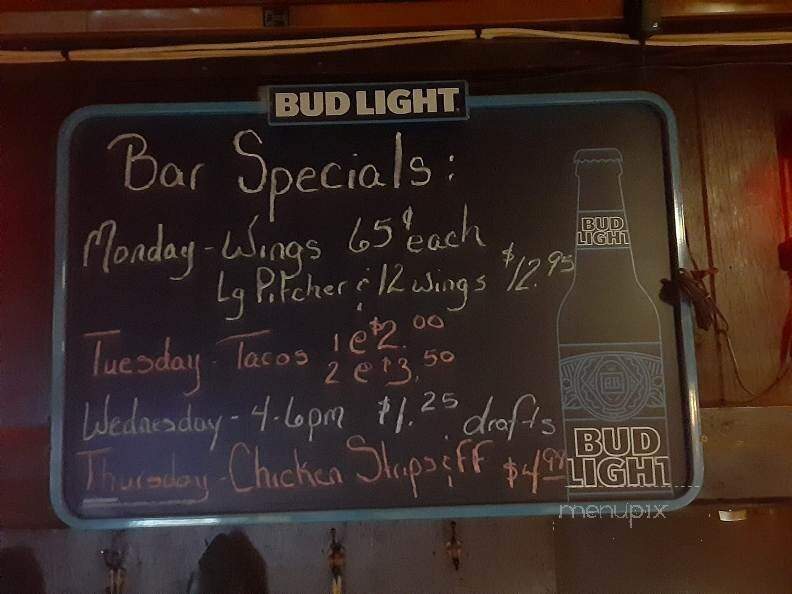 BUD LIGHT
Bar Specials:
Monday - Wings 65¢ each
Lg Pitcher & 12 wings $12.95
Tuesday - Tacos 1 @ $2.00
2 @ $3.50
Wednesday - 4-6pm $1.25 drafts
Thursday - Chicken Strips & FF
BUD
LIGHT
BUD
LIGHT
menupix